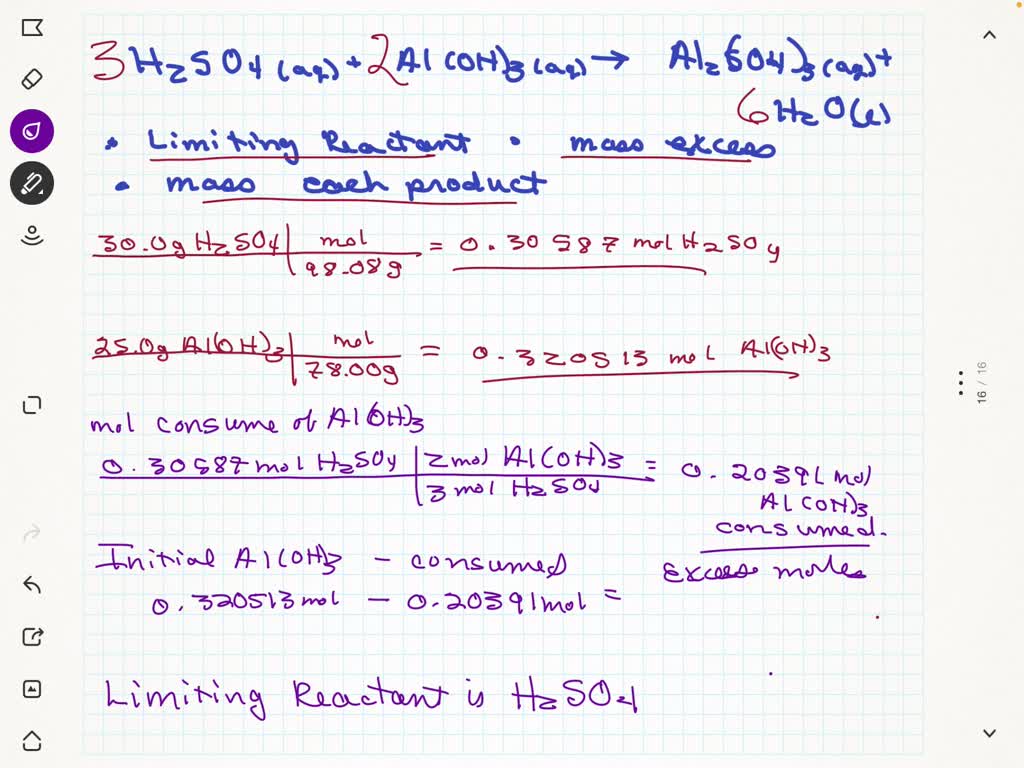 3H2SO4(aq) + 2Al(OH)3(aq) → Al2(SO4)3(aq) +
6H2O(l)
• Limiting Reactant • mass excess
• mass each product
30.0g H2SO4 | mol = 0.30587 mol H2SO4
98.08g
25.0g Al(OH)3 | mol = 0.320513 mol Al(OH)3
78.00g
mol consume of Al(OH)3
0.30587 mol H2SO4 | 2 mol Al(OH)3 = 0.20391 mol
3 mol H2SO4
Al(OH)3
consumed.
Initial Al(OH)3 - consumed
Excess moles
0.320513 mol - 0.20391 mol =
Limiting Reactant is H2SO4
16 / 16